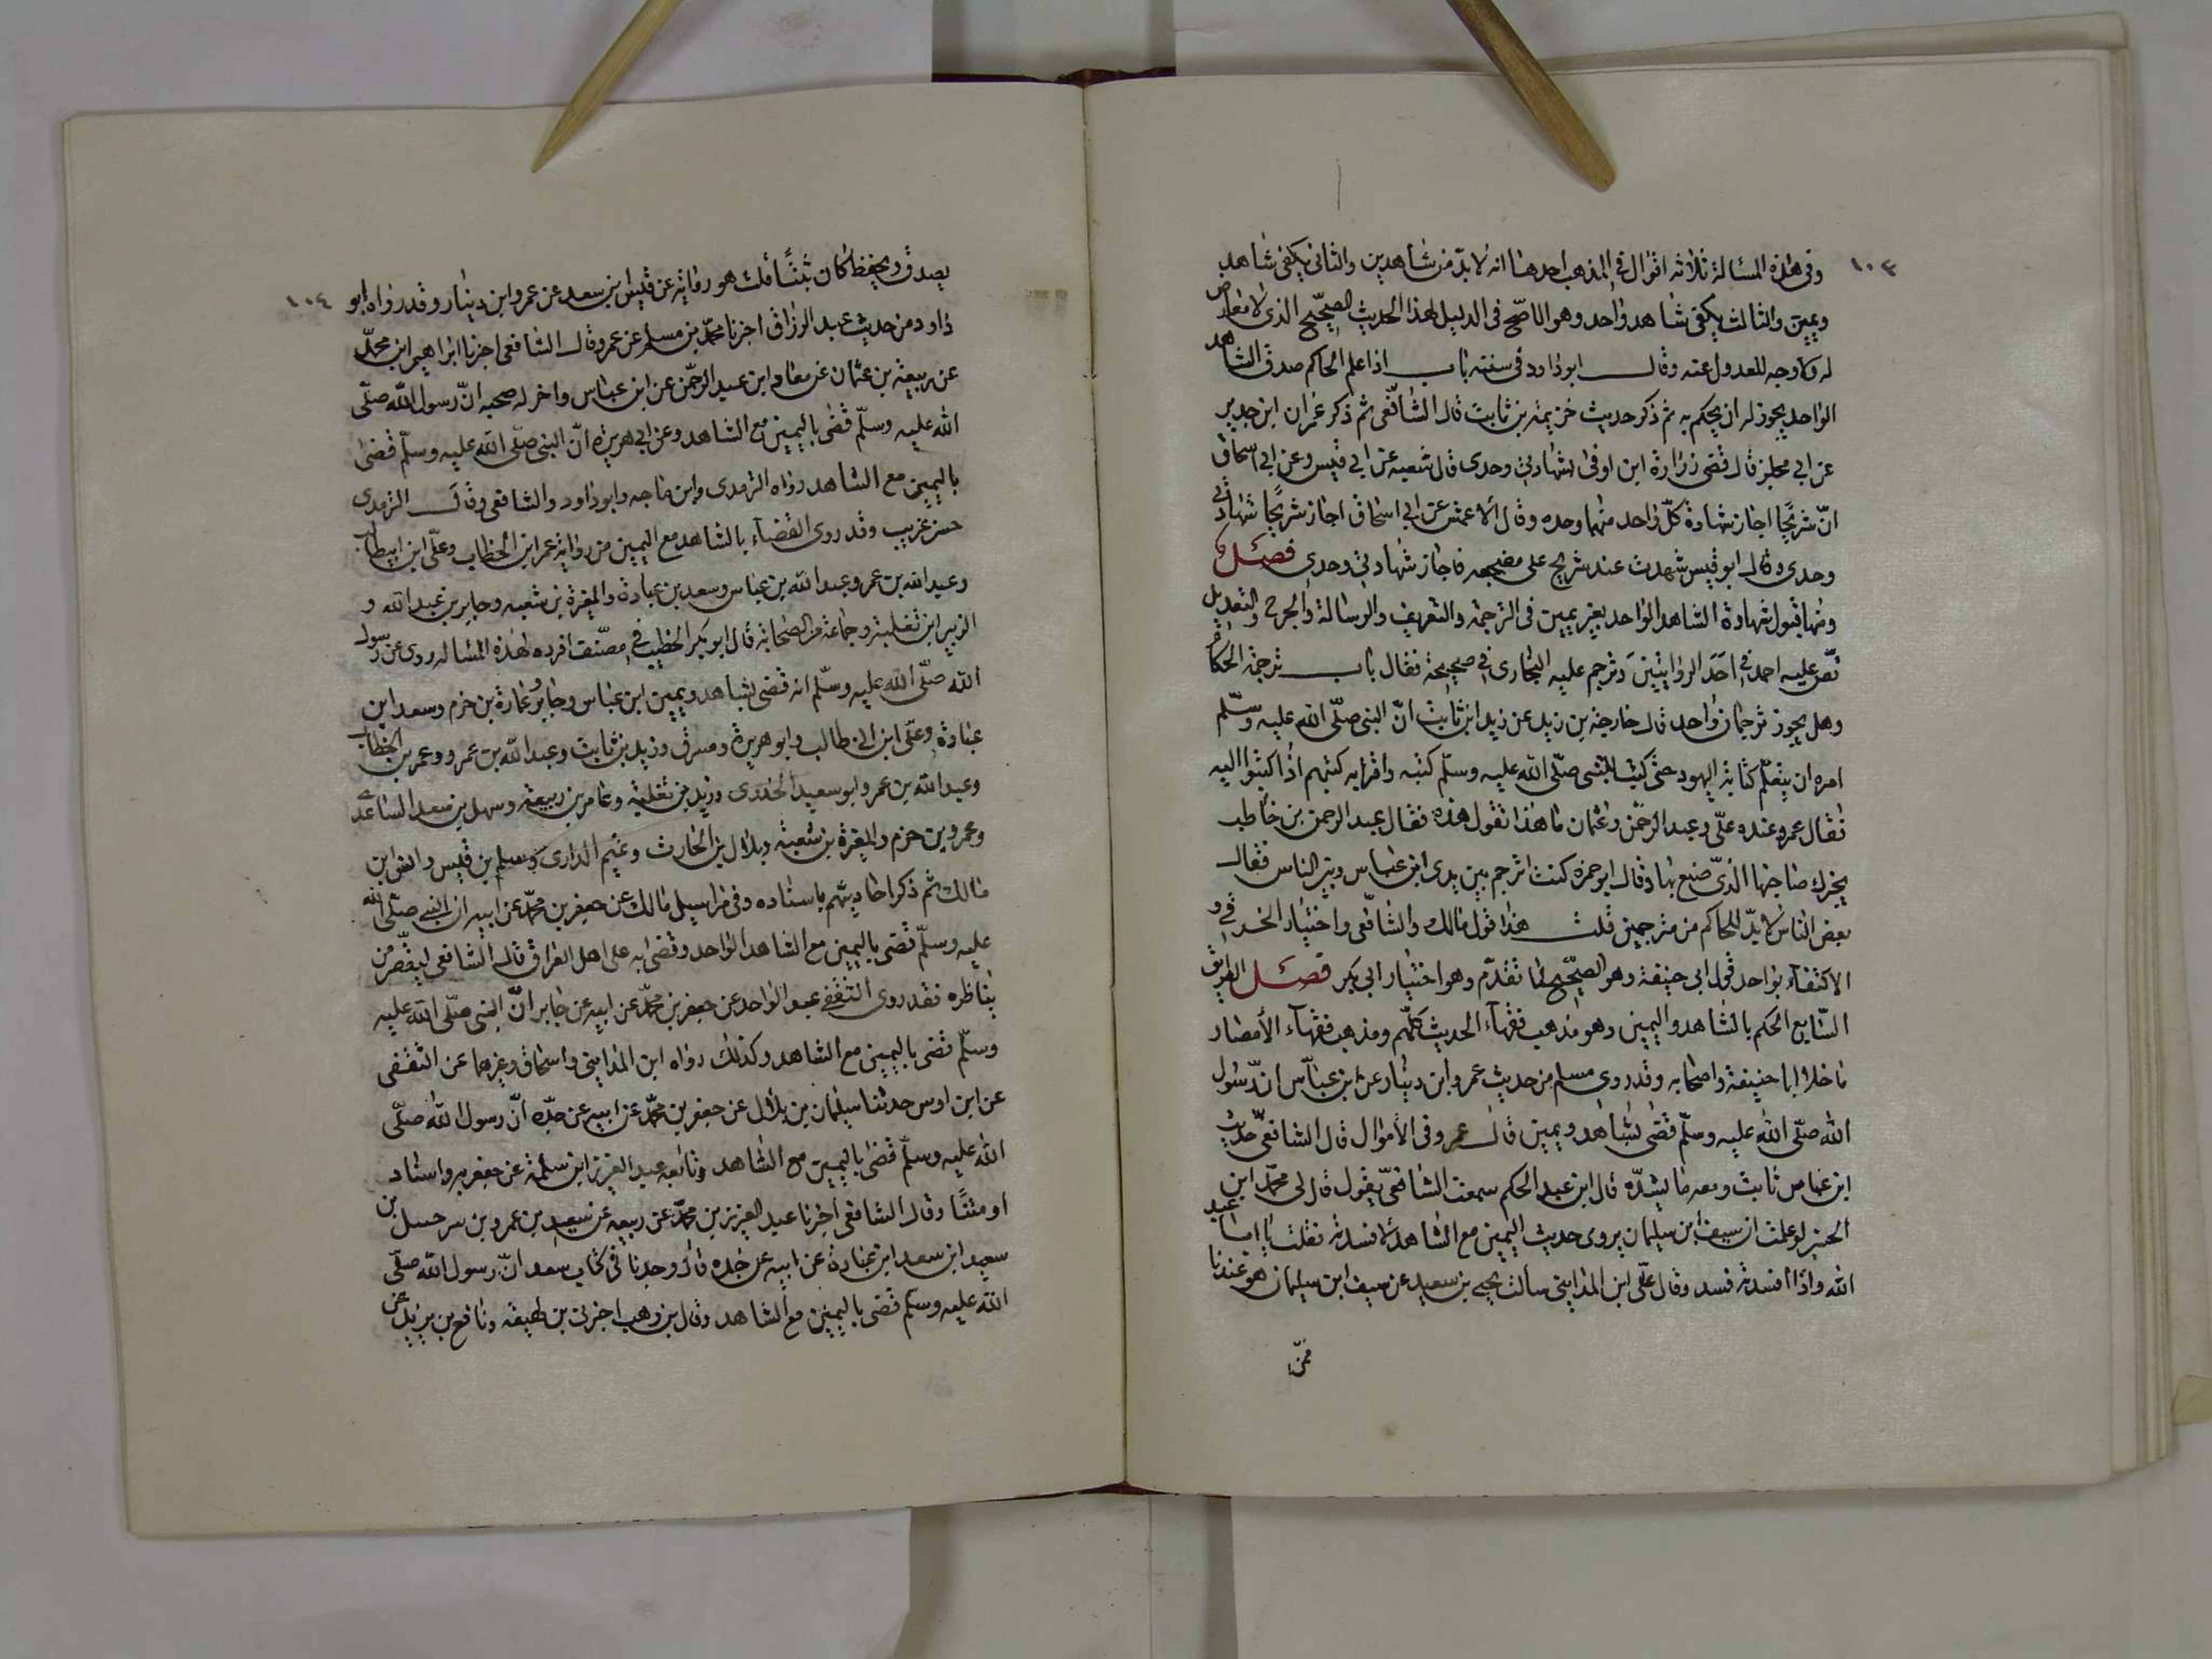 ١٠٣
وفى هذه المسئالة ثلاثه اقوال فى المذهب احدها انه لا بدّ من شاهدين والثانى يكفى شاهد
ويمين والثالث يكفى شاهد واحد وهو الاصحّ فى الدليل لهذا الحديث الصحيّح الذى لا معارض
له ولا وجه للعدول عنه وقال ابو داود فى سننه باب اذا علم الحاكم صدق الشاهد
الواحد يجوز له ان يحكم به ثم ذكر حديث خزيمه بن ثابت قال الشافّعى ثم ذكر عمران ابن حدير
عن ابي مجلز قال قضى زرارة ابن اوفى بشهادتى وحدى قال شعبه عن ابي قيس وعن ابي اسحاق
انّ شريحًا اجاز شهادة كلّ واحد منهما وحده وقال الأعمش عن ابي اسحاق اجاز شريحًا شهادتى
وحدى قال ابو قيس شهدت عند شريح على مصحجه فاجاز شهادتى وحدى فصـل
ومنها قبول شهادة الشاهد الواحد بغير يمين فى الترجمة والتعريف والرسالة والجرح والتعديل
نصّ عليه احمد فى احَدَ الروايتينَ وترجم عليه البخارى فى صحيحة فقال باب ترجمة الحكام
وهل يجوز ترجمان واحد قال خارجة بن زيد عن زيد ابن ثابت انّ النبى صلّى الله عليه وسلّم
امره ان يتعلّم كتابة اليهود حتى كتبت للنبى صلّى الله عليه وسلّم كتبه واقرابه كتبهم اذا كتبوا اليه
فقال عمر وعنده علّى وعبد الرحمّن وعثمان ماهذا تقول هذه فقال عبد الرحمن بن حاطب
يخبرك صاحبها الذىّ صنع بها وقال ابو حمزه كنت اترجم بين يدى ابن عباس وبين الناس فقال
بعض الناس لا بدّ للحاكم من مترجمين قلت هذا قول مالك والشافّعى واختيار الخرقى و
الاكتفاء بواحد قول ابى حنيفة وهو الصحّيح لما تقدّم وهو اختيار ابى بكر فصـل الطريق
السّابع الحكم بالشاهد واليمين وهو مذهب فقهاء الحديث كلّهم ومذهب فقهاء الأمصار
ماخلا ابا حنيفة واصحابه وقد روى مسلم من حديث عمرو ابن دينار عن ابن عباّس انّ رسول
الله صلّى الله عليه وسلّم قضى بشاهد ويمين قال عمرو فى الأموال قال الشافعىّ حديث
ابن عباس ثابت ومعه ما يشدّه قال ابن عبد الحكم سمعت الشافعىّ يقول قال لى محمّد ابن
الحسن لو علمت ان سيف ابن سيلمان يروى حديث اليمين مع الشاهد لافسدته فقلت يا ابا عبد
الله واذا افسدته فسد وقال علّى ابن المداينى سالت يحيى بن سعيد عن سيف ابن سيلمان هو عندنا
ممنّ
١٠٤
يصدق ويحفظ كان ثبتًا قلت هو رواية عن قيس بن سعد عن عمرو ابن دينار وقد رواه ابو
داود من حديث عبد الرزاق اخبرنا محمّد بن مسلم عن عمرو وقال الشافعى اخبرنا ابراهيم ابن محمّد
عن ربيعة بن عثمان عن معاذ ابن عبد الرحمّن عن ابن عباس واخر له صحبه انّ رسول الله صلّى
الله عليه وسلّم قضى باليمين مع الشاهد وعن ابى هريرة انّ النبى صلّى الله عليه وسلّم قضى
باليمين مع الشاهد رواه الترمدى وابن ماجه وابو داود والشافعى وقال الترمدى
حسن غريب وقد روى القضاء بالشاهد مع اليمين من رواية عمر ابن الخطاب وعلّى ابن ابيطالب
وعبد الله بن عمر وعبد الله بن عباس وسعد بن عبادة والمغيرة بن شعبه وجابر بن عبد الله و
الزبير ابن ثعلبة وجماعة من الصحابة قال ابو بكر الخطيب فى مصّنف افرده لهذه المئساله روى عن رسول
الله صلّى الله عليه وسلّم انه قضى بشاهد ويمين ابن عباس وجابر وعمارة بن حزم وسعد ابن
عبادة وعلّى ابن ابى طالب وابو هريرة ومسرق وزيد بن ثابت وعبد الله بن عمرو وعمر بن الخطاب
وعبد الله بن عمر وابو سعيد الخدرى وزيد بن ثعلبة وعامر بن ربيعة وسهل بن سعد الساعدى
وعمرو بن حزم والمغيرة بن شعبة وبلال بن الحارث وتميم الدارى وسلم بن قيس وانس ابن
مالك ثم ذكر احاديثّهم باسناده وفى مراسيل مالك عن جعفر بن محمّد عن ابيه ان النبى صلّى الله
عليه وسلّم قضى باليمين مع الشاهد الواحد وقضى به على اهل العراق قال الشافعى لبعض من
يناظره فقد روى الثقفى عبد الواحد عن جعفر بن محمّد عن ابيه عن جابر انّ النبى صلّى الله عليه
وسلّم قضى باليمين مع الشاهد وكذلك رواه ابن المداينى واسحاق وغيرهما عن الثقفى
عن ابن اوس حدثنا سيلمان بن بلال عن جعفر بن محمّد عن ابيه عن جدّه انّ رسول الله صلّى
الله عليه وسلّم قضى باليمين مع الشاهد وتابعه عبد العزيز ابن سلمة عن جعفر به واسناد
اومتنًا وقال الشافعى اخبرنا عبد العزيز بن محمّد عن ربيعه عن سعيد بن عمرو بن سرحسل بن
سعيد ابن سعد ابن عبادة عن ابيه عن جده قال وجدنا فى كتاب سعد انّ رسول الله صلّى
الله عليه وسلّم قضى باليمين مع الشاهد وقال بن وهب اخبرنى بن لهيعه ونافع بن يزيد عن